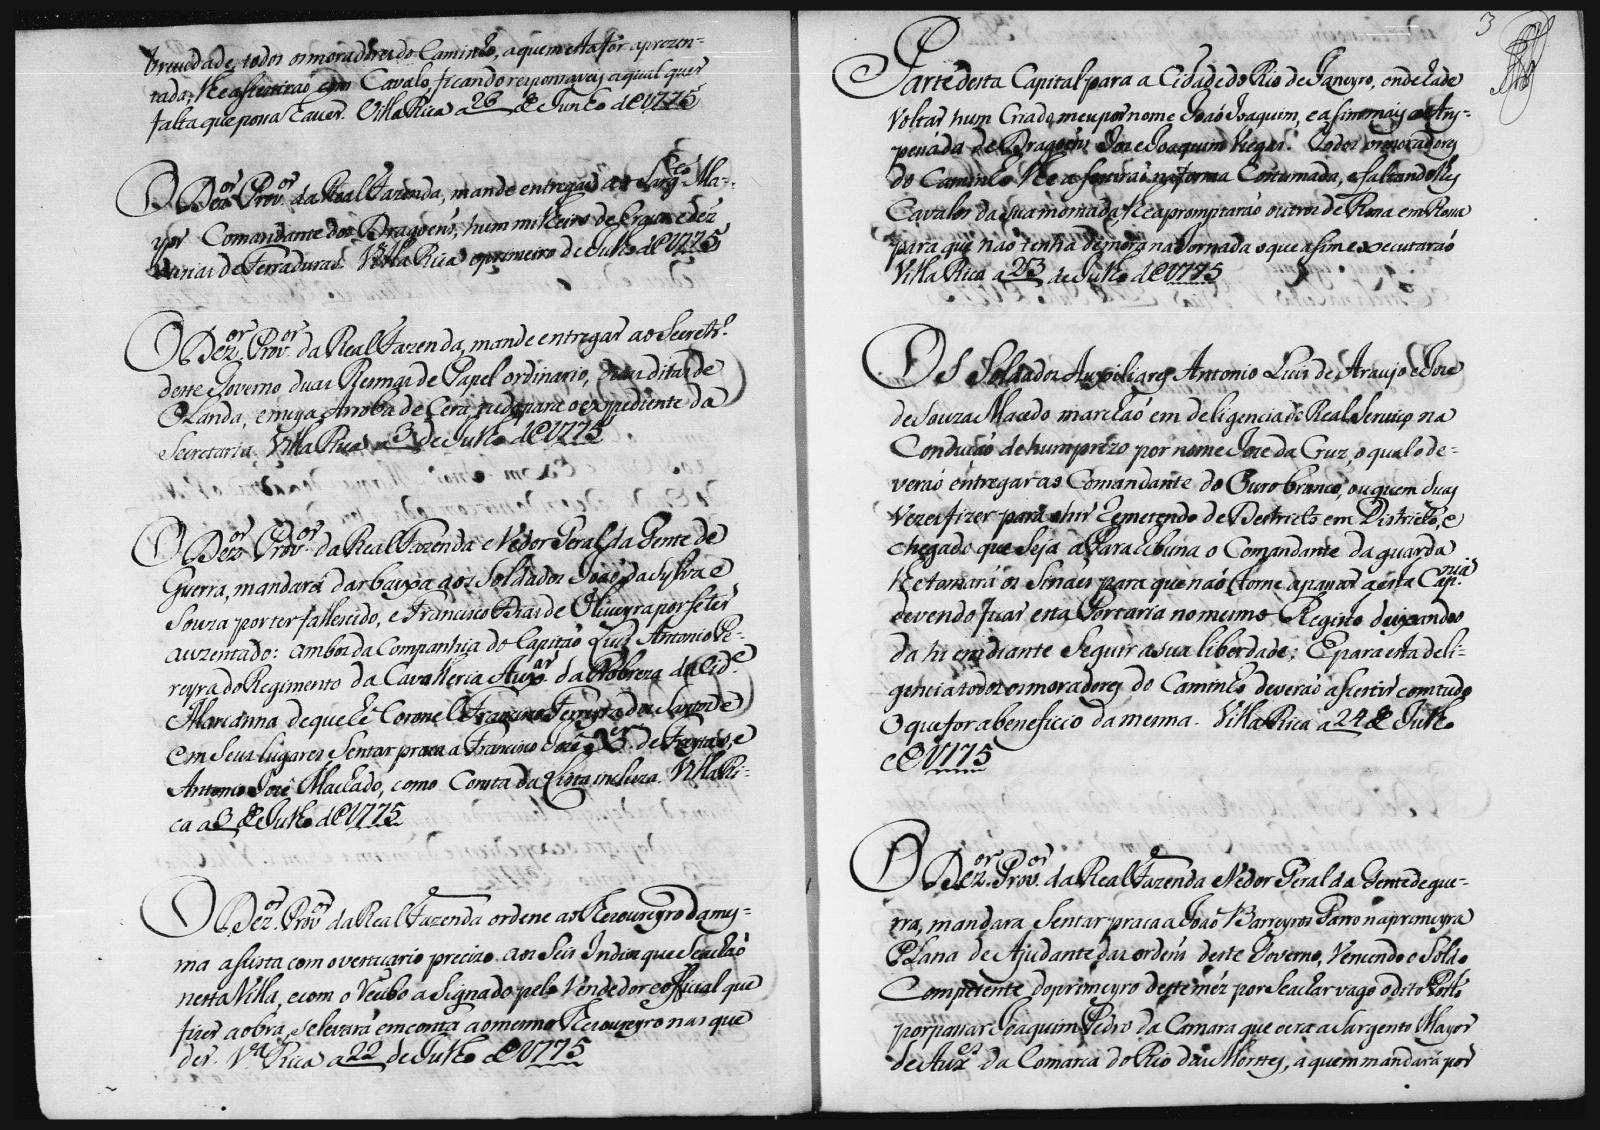 brevidade, todos os moradores do Caminho, a quem esta fôr aprezen-
tada, lhe asestirão com Cavalo, ficando responsaveis a qual quer
falta que possa haver. Villa Rica a 26 de Junho de 1775
O Dez.or Prov.or da Real Fazenda, mande entregar ao Sarg.to Ma-
yor Comandante dos Dragoens, hum milheiro de Cravos, e déz
duzias de Ferraduras. Villa Rica o primeiro de Julho de 1775
O Dez.or Prov.or da Real Fazenda, mande entregar ao Secretr.o
deste Governo duas Resmas de Papel ordinario, ditas de
Olanda, e meya Arroba de Cera, tudo para o expediente da
Secretaria. Villa Rica a 3 de Julho de 1775
O Dez.or Prov.or da Real Fazenda e Vedor Geral da Gente de
Guerra, mandará dar baixa aos Soldados João da Sylva e
Souza por ter fallescido, e Francisco Dias de Oliveyra por se ter
auzentado: ambos da Companhia do Capitão Luis Antonio Pe-
reyra do Regimento da Cavalleria Aux.ar da Nobreza da Cid.e
Marianna, de que hé Coronel Francisco Ferreyra dos Santos, e
em Seus lugares Sentar praça a Francisco Jozé de Freytas, e
Antonio Jozê Machado, como Consta da Lista incluza. Villa Ri-
ca a 3 de Julho de 1775
O Dez.or Prov.or da Real Fazenda ordene ao Thezoureyro da mes-
ma asista com o vestuario precizo aos Seis Indios que Se achão
nesta Villa, e com o recibo asignado pelo Vendedor e official que
fizer a obra, Se levará em conta ao mesmo Thezoureyro nas que
der. V.a Rica a 22 de Julho de 1775
3
Parte desta Capital para a Cidade do Rio de Janeyro, onde hade
voltar hum Criado meu por nome João Joaquim, e asim mais o Ans-
pesada de Dragoens Joze Joaquim Viegas. Todos os moradores
do Caminho lhe asestirão na forma Costumada, e faltandolhes
Cavalos da sua montada, lhe apromptarão outros de Rossa em Rossa
para que não tenhá demora na Jornada o que asim executarão
Villa Rica a 23 de Julho de 1775
Os Soldados Auxiliares Antonio Luis de Araujo e Joze
de Souza Macedo marchão em deligencia do Real Serviço na
Condução de hum prezo por nome Joze da Cruz, o qual o de-
verão entregar ao Comandante do Ouro branco, ou quem Suas
vezes fizer para o hir Remetendo de Destricto em Districto, e
chegado que Seja á Parahibuna o Comandante da guarda
lhe tomará os Sinaes para que não torne a pasar a esta Cap.nia
devendo ficar esta Portaria no mesmo Registo deixandoo
da hi em diante Seguir a sua liberdade: E para esta deli-
gencia todos os moradores do Caminho deverão asestir com tudo
O que for a beneficio da mesma. Villa Rica a 24 de Julho
de 1775
O Dez.or Prov.or da Real Fazenda Vedor Geral da Gente de gue-
rra, mandará Sentar praça a João Barreyros Parro na primeyra
Plana de Ajudante das ordens deste Governo, Vencendo o Soldo
Competente do primeyro deste mêz por Se achar vago o dito Posto
por pasar Joaquim Pedro da Camara que o era a Sargento Mayor
de Aux.es da Comarca do Rio das Mortes, a quem mandará por